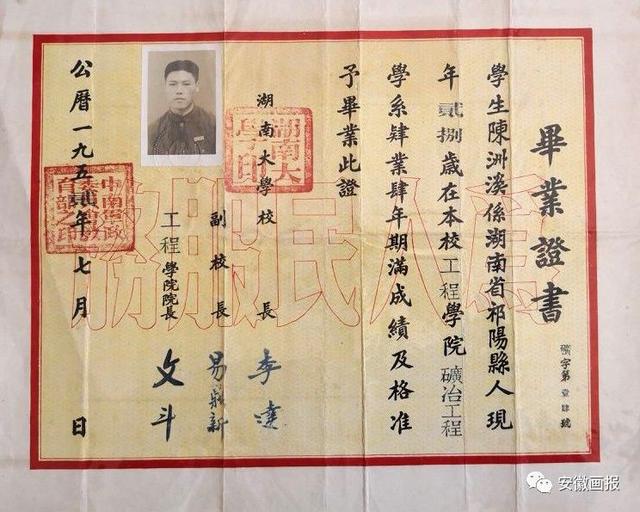 畢業證書
礦字第壹肆號
學生陳洲溪係湖南省祁陽縣人現
年貳捌歲在本校工程學院礦冶工程
學系肄業肆年期滿成績及格准
予畢業此證
湖南大學校長 李達
副校長 易鼎新
工程學院院長 文斗
公曆一九五貳年七月 日
為人民服務
湖南大學印
安徽画报